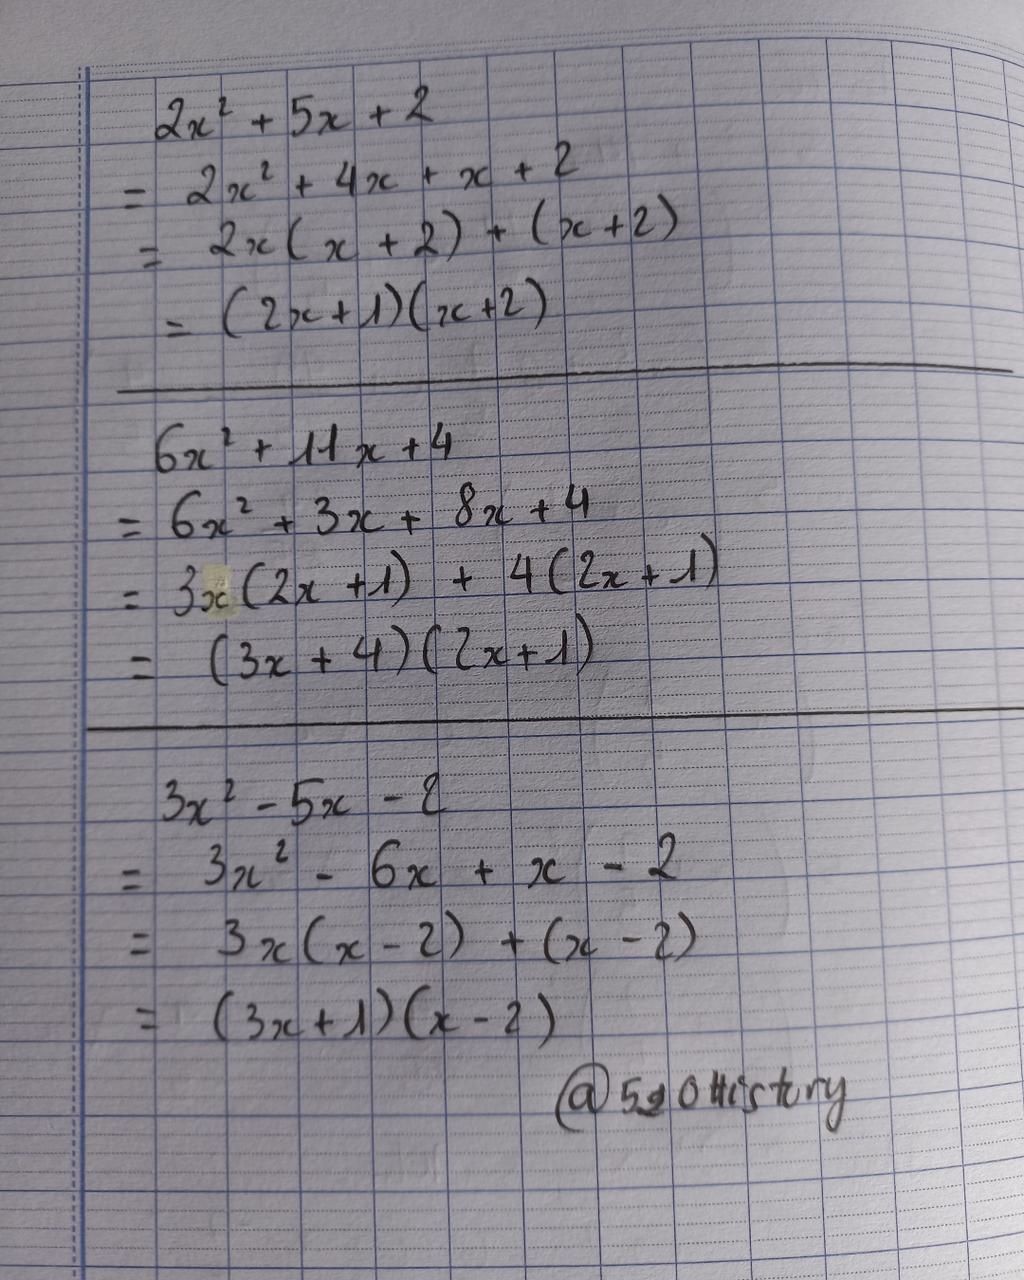 2x² + 5x + 2
= 2x² + 4x + x + 2
= 2x(x + 2) + (x+2)
= (2x+1)(x+2)
6x² + 11x + 4
= 6x² + 3x + 8x + 4
= 3x(2x+1) + 4(2x+1)
= (3x + 4)(2x+1)
3x² - 5x - 2
= 3x² - 6x + x - 2
= 3x(x - 2) + (x - 2)
= (3x+1)(x-2)